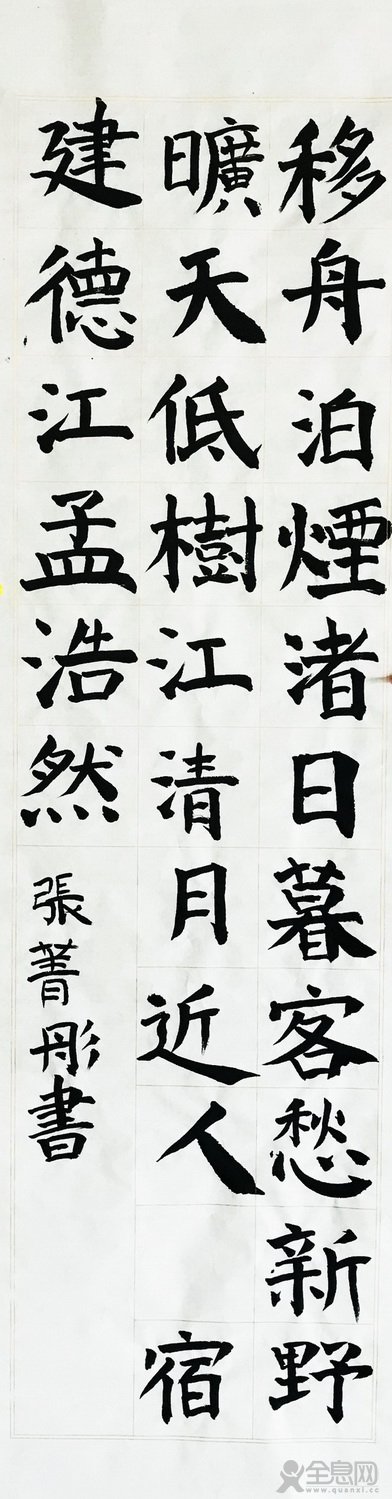 移舟泊煙渚日暮客愁新野
曠天低樹江清月近人
宿建德江孟浩然
張菁彤書
全息网
www.quanxi.cc